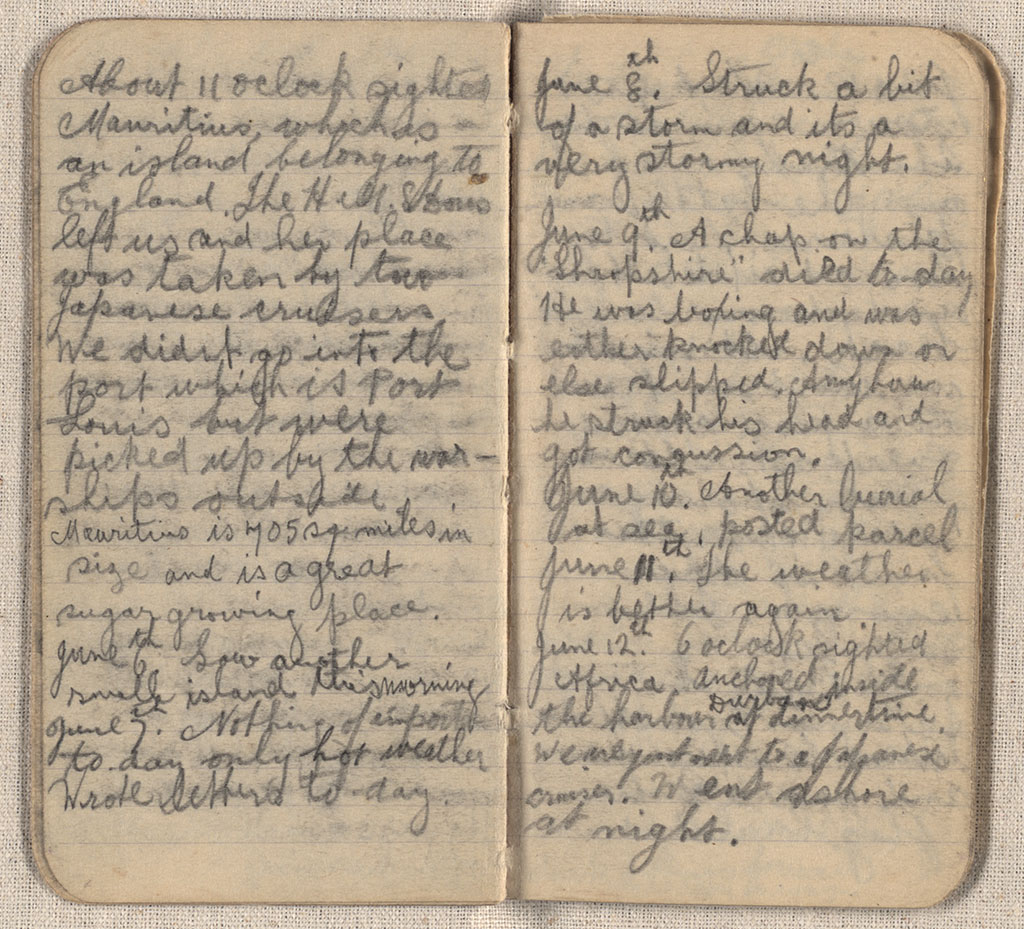 About 11 oclock sighted
Mauritius, which is –
an island belonging to
England. The H.M.S.
left us and her place
was taken by two
Japanese cruisers
We didnt go into the
port which is Port
Louis but were
picked up by the war–
ships outside.
Mauritius is 705 sq. miles in
size and is a great
sugar growing place.
June 6th. Saw another
small island this morning
June 7th. Nothing of import
to day only hot weather
Wrote letters to-day.
June 8th. Struck a bit
of a storm and its a
very stormy night.
June 9th. A chap on the
"Shropshire" died to-day
He was boxing and was
either knocked down or
else slipped. Anyhow
he struck his head and
got congussion.
June 10th. Another burial
at sea, posted parcel
June 11th. The weather
is better again
June 12th. 6 oclock sighted
Africa. Anchored inside
Durban
the harbour at dinnertime.
We were just next to a Japanese
cruiser. Went ashore
at night.